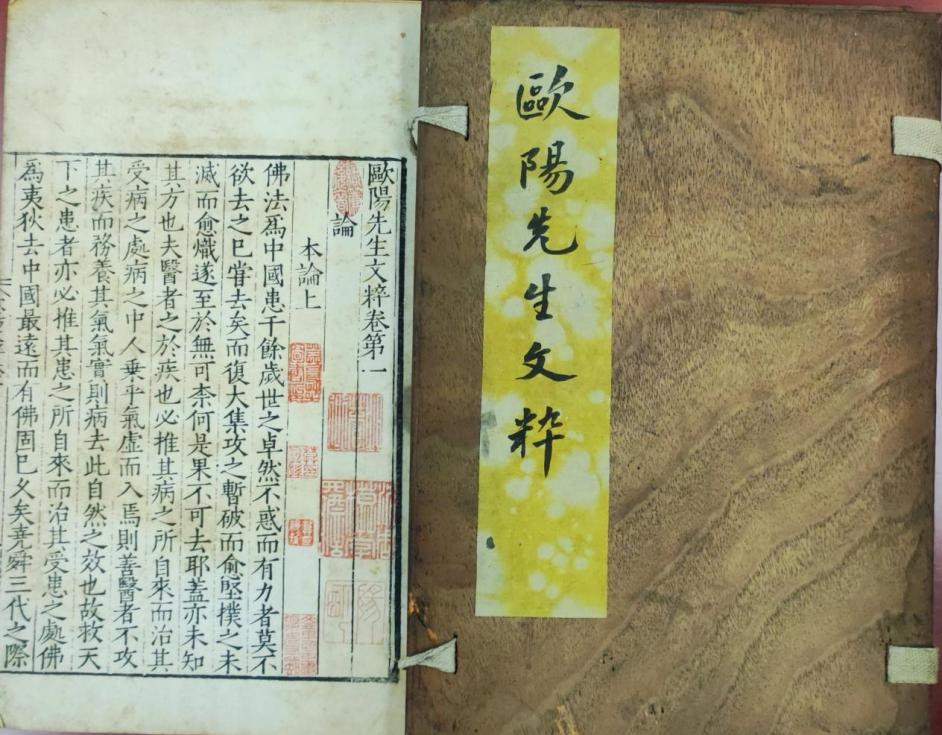 歐陽先生文粹
歐陽先生文粹卷第一
論
本論上
佛法爲中國患千餘歲世之卓然不惑而有力者莫不
欲去之巳甞去矣而復大集攻之暫破而愈堅撲之未
滅而愈熾遂至於無可柰何是果不可去耶蓋亦未知
其方也夫醫者之於疾也必推其病之所自來而治其
受病之處病之中人乗乎氣虛而入焉則善醫者不攻
其疾而務養其氣氣實則病去此自然之效也故救天
下之患者亦必推其患之所自來而治其受患之處佛
爲夷狄去中國最遠而有佛固巳乆矣堯舜三代之際